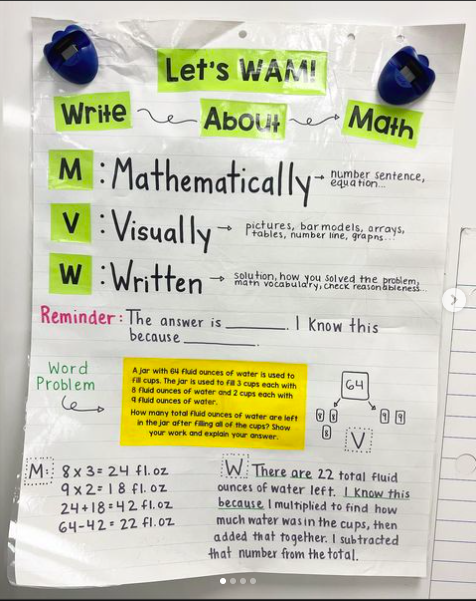 Let's WAM!
Write About Math
M : Mathematically → number sentence,
equation...
V : Visually → pictures, bar models, arrays,
tables, number line, graphs...
W : Written → solution, how you solved the problem,
math vocabulary, check reasonableness...
Reminder: The answer is ______. I Know this
because ______.
Word
Problem
A jar with 64 fluid ounces of water is used to
fill cups. The jar is used to fill 3 cups each with
8 fluid ounces of water and 2 cups each with
9 fluid ounces of water.
How many total fluid ounces of water are left
in the jar after filling all of the cups? Show
your work and explain your answer.
64
8 8 9 9
8
V
M:
8 x 3 = 24 fl. oz
9 x 2 = 18 fl. oz
24+18 = 42 fl. oz
64-42 = 22 fl. oz
W: There are 22 total fluid
ounces of water left. I Know this
because I multiplied to find how
much water was in the cups, then
added that together. I subtracted
that number from the total.